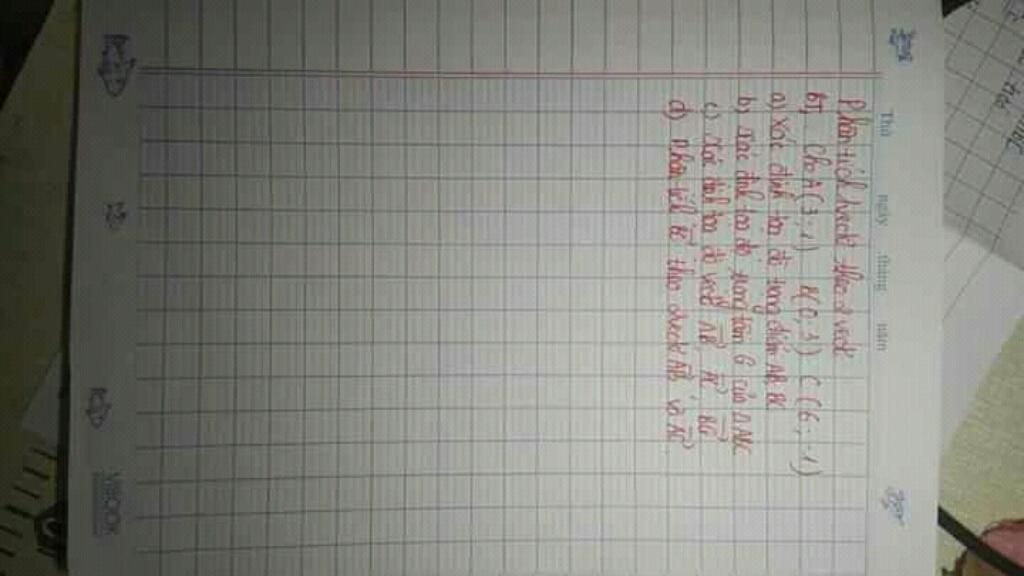 Thứ ngày tháng năm
Phân tích vectơ theo 2 vectơ
BT1 Cho A(3;1) B(0;3) C(6;-1)
a) Xác định tọa độ trung điểm AB, BC
b) Xác định tọa độ trọng tâm G của ΔABC
c) Xác định tọa độ vectơ AB, AC, BG
d) Phân tích theo vectơ AB và AC
VIBOOK